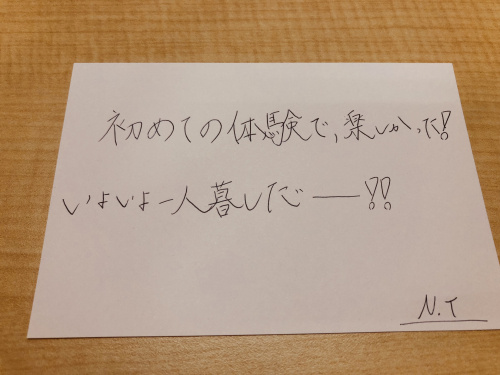 初めての体験で、楽しかった!
いよいよ一人暮しだー!!
N.T